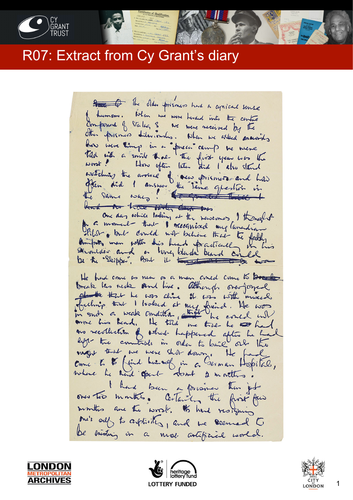 CY
GRANT
TRUST
R07: Extract from Cy Grant's diary
the older prisoners had a cynical sense
of humour. When we were herded into the centre
compound of Stalag 3 we were received by the
other prisoners. When we asked
how were things in a prison camp we were
told with a smile that the first year was the
worst! How often later did I also stand
watching the arrival of new prisoners and how
often did I answer the same question in
the same way!
One day while looking at the newcomers, I thought
for a moment that I recognised my Canadian
Pilot - but could not believe that the
man with his head practically on his
shoulder and a long black beard could
be the "Skipper". But it
He had come as near as a man could come to
break his neck and live. Although overjoyed
that he was alive it was with mixed
feelings that I looked at my friend. He was
in such a weak condition, he could not
move his head. He told me that he had
no recollection of what happened after he had
left the controls in order to bail out the
night that we were shot down. He had
come to to find himself in a German Hospital,
where he had spent about 2 months.
I had been a prisoner then just
over two months. Certainly the first few
months are the worst. To have resigned
one's self to captivity, and we seemed to
be existing in a most artificial world.
LONDON
METROPOLITAN
ARCHIVES
heritage
lottery fund
LOTTERY FUNDED
CITY
OF
LONDON
1